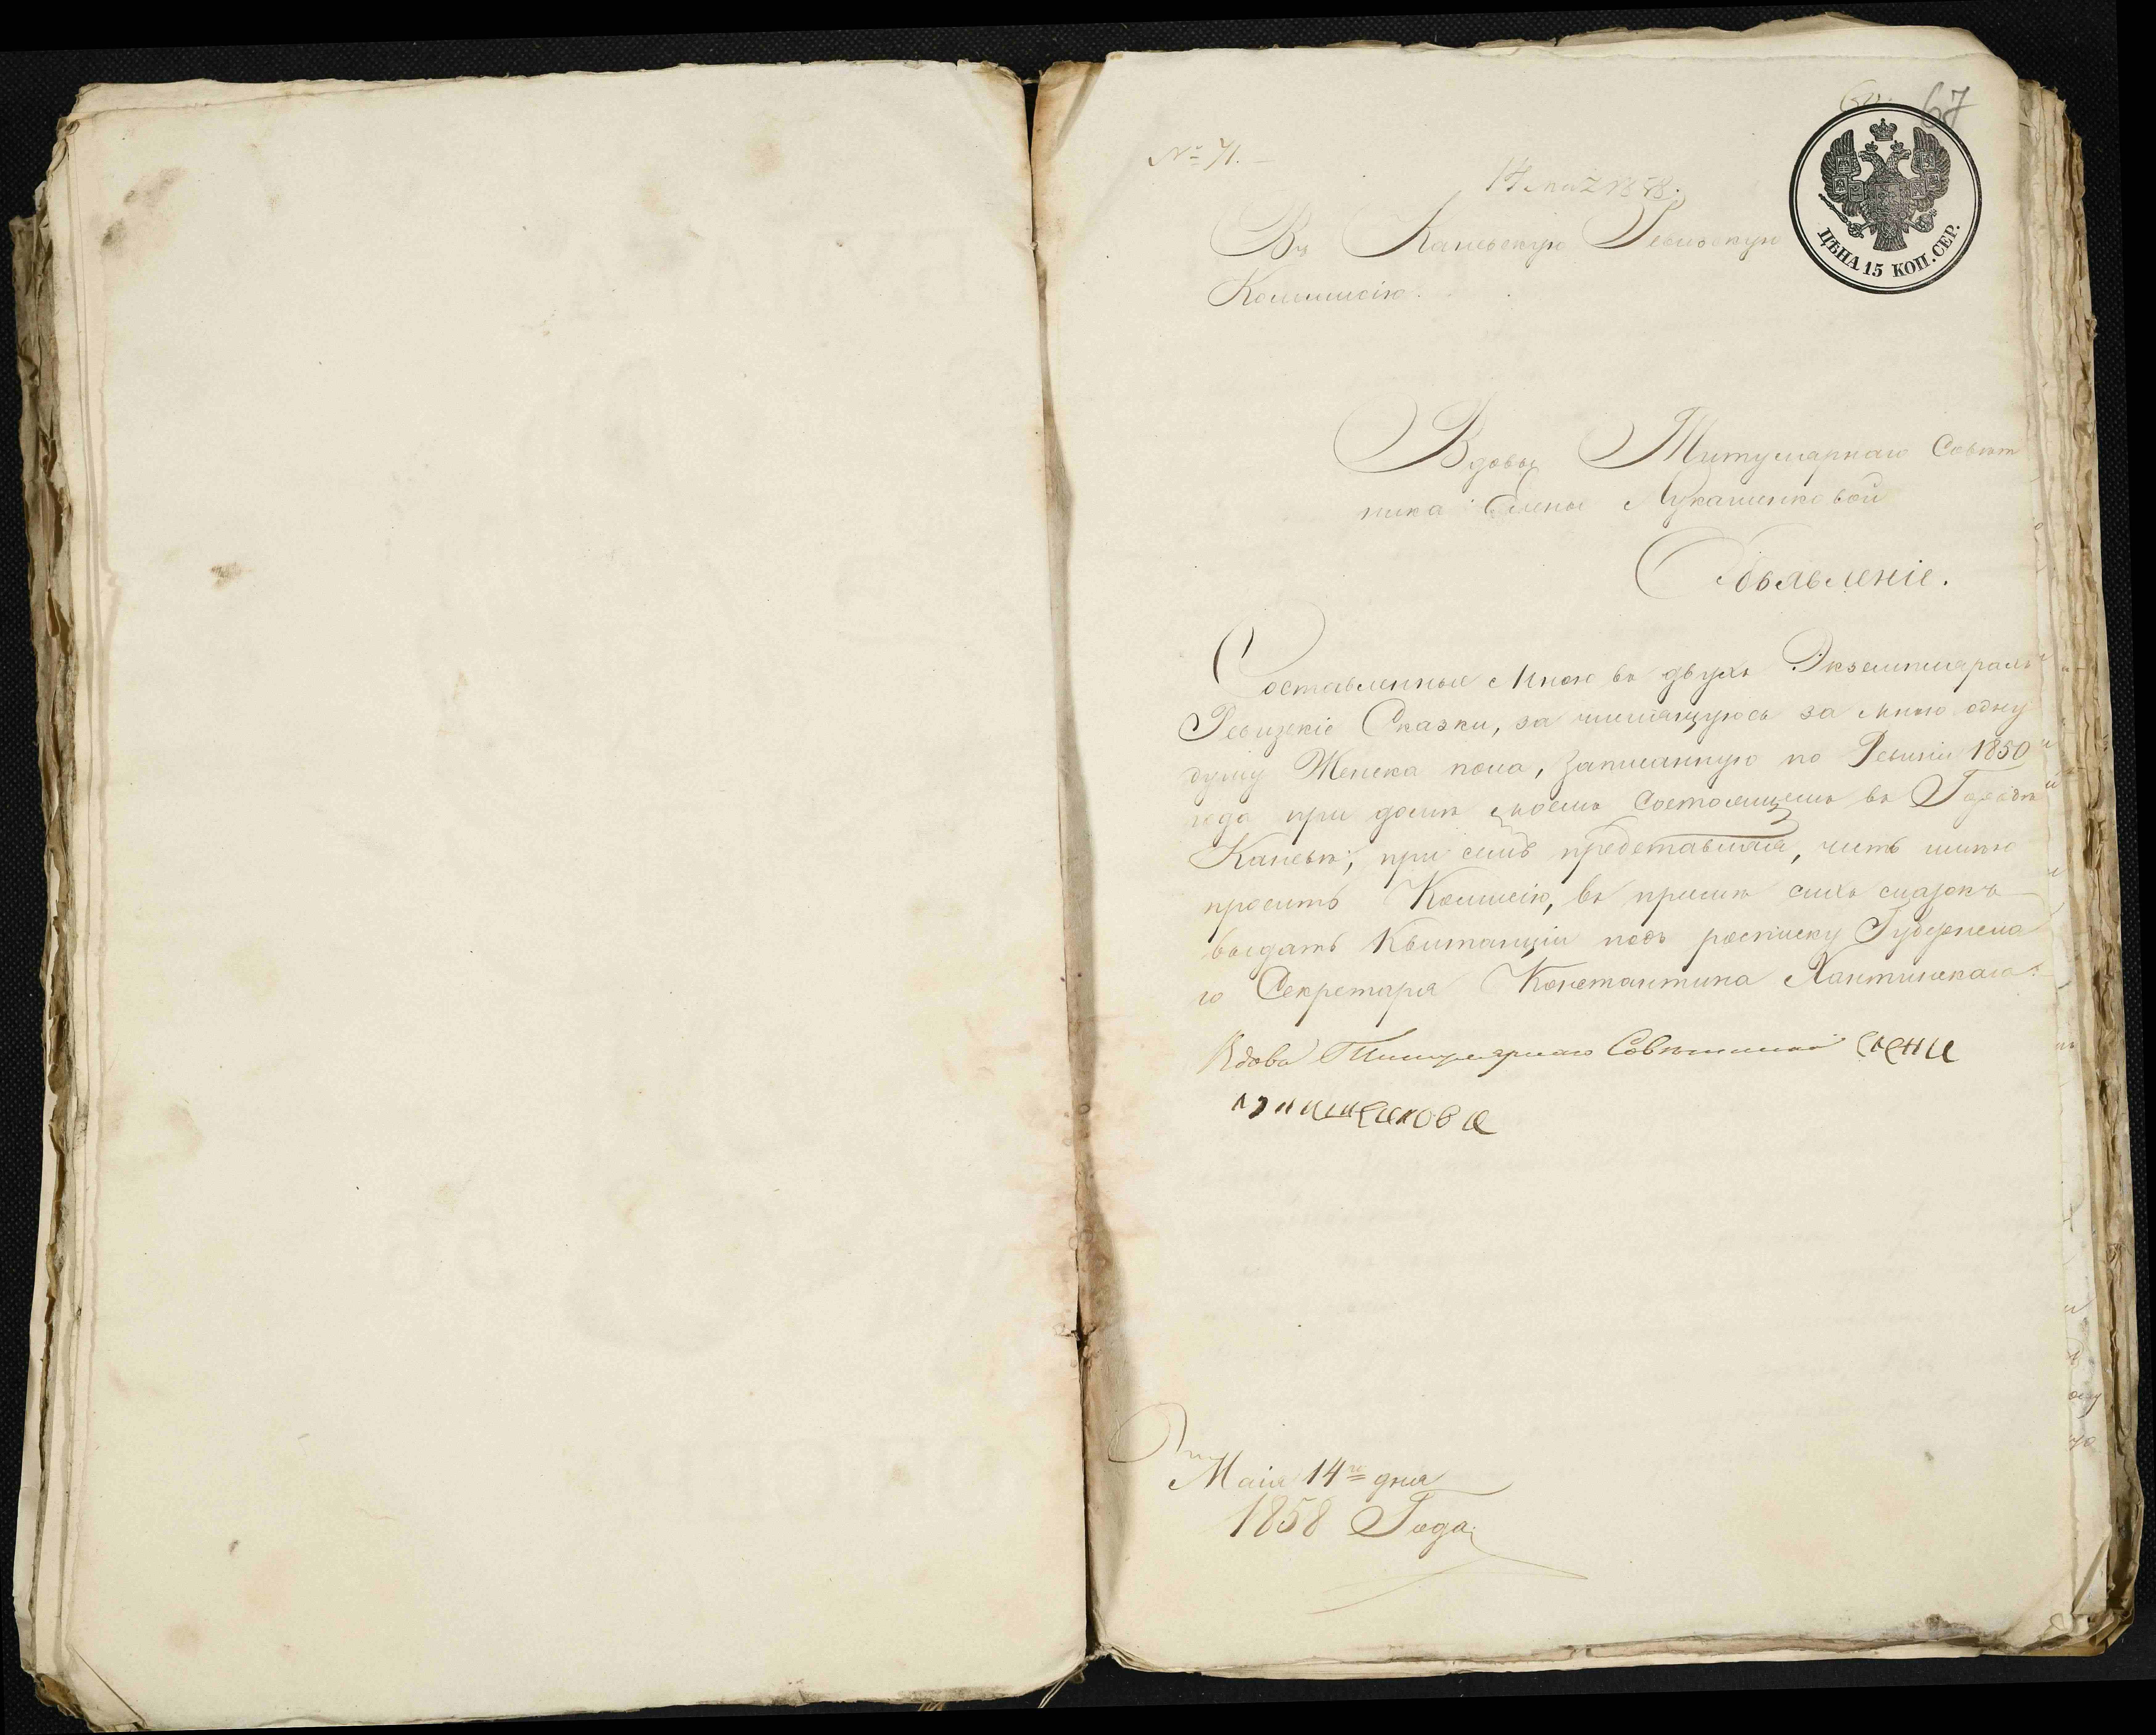 67
№ 71.
14 мая 1858.
ЦѢНА 15 КОП. СЕР.
Въ Каневскую Ревизскую
Коммисію.
Вдовы Титулярнаго Совѣт
ника Елены Лукашенковой
Объявленіе.
Составленные мною въ двухъ Экземплярахъ
Ревизкіе Сказки, за числящуюсь за мною одну
душу Женска пола, записанную по Ревизіи 1850
года при домѣ моемъ состоящемъ въ Городѣ
Каневѣ, при семъ представляя, честь имѣю
просить Комисію, въ пріемѣ сихъ сказокъ
выдать Квитанціи подъ росписку Губернска
го Секретаря Константина
Вдова Титулярнаго Совѣтника
Маія 14го дня
1858 Года